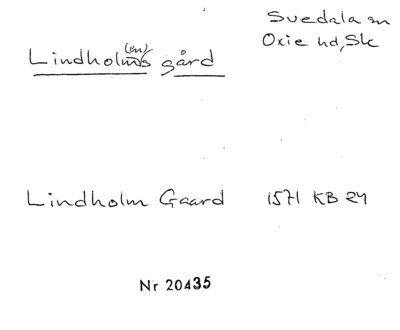 Svedala sn
Oxie hd, Sk
Lindholms (en) gård
Lindholm Gaard 1571 KB 24
Nr 20435